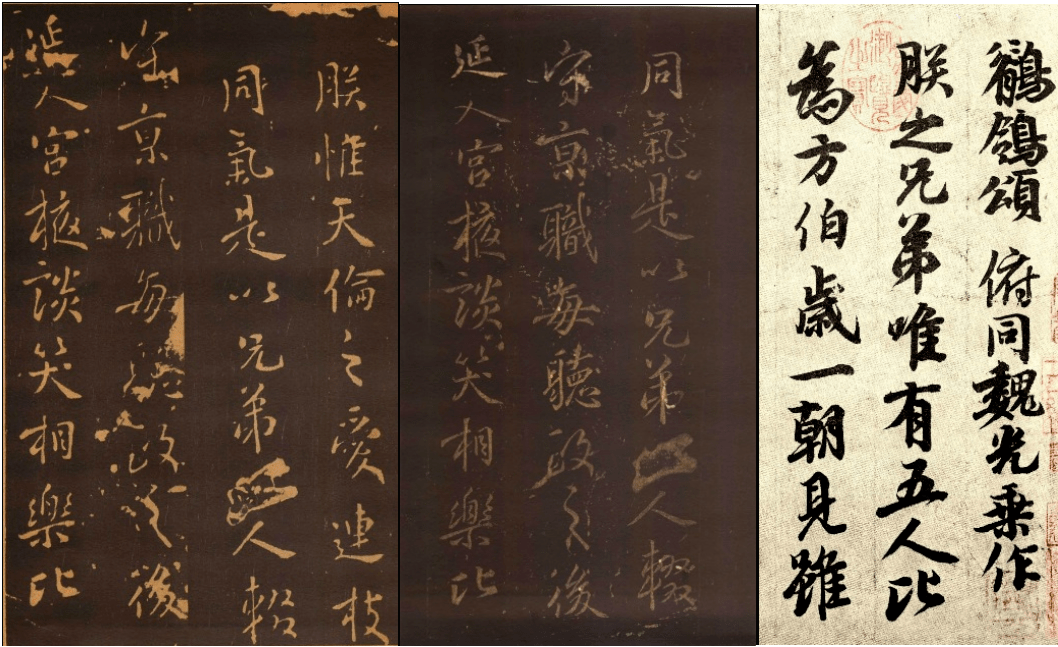 朕惟天倫之愛連枝
同氣是以兄弟人輟
守京職每政之後
延入宮掖談笑相樂比
同氣是以兄弟人輟
守京職每聽政之後
延入宮掖談笑相樂比
鶺鴒頌 俯同魏光乘作
朕之兄弟唯有五人比
為方伯歲一朝見雖